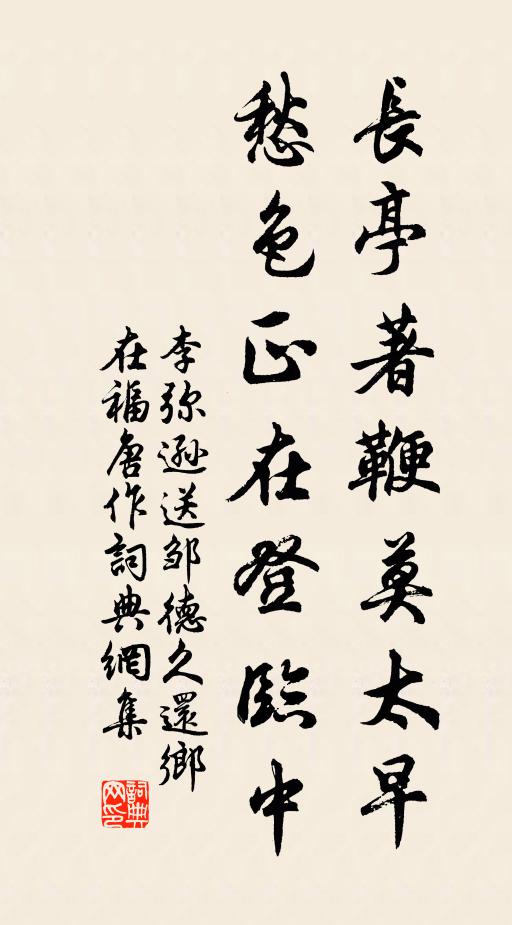 長亭著鞭莫太早
愁色正在登臨中
李弥遜送邹德久還鄉
在福唐作詞典網集
詞典网印